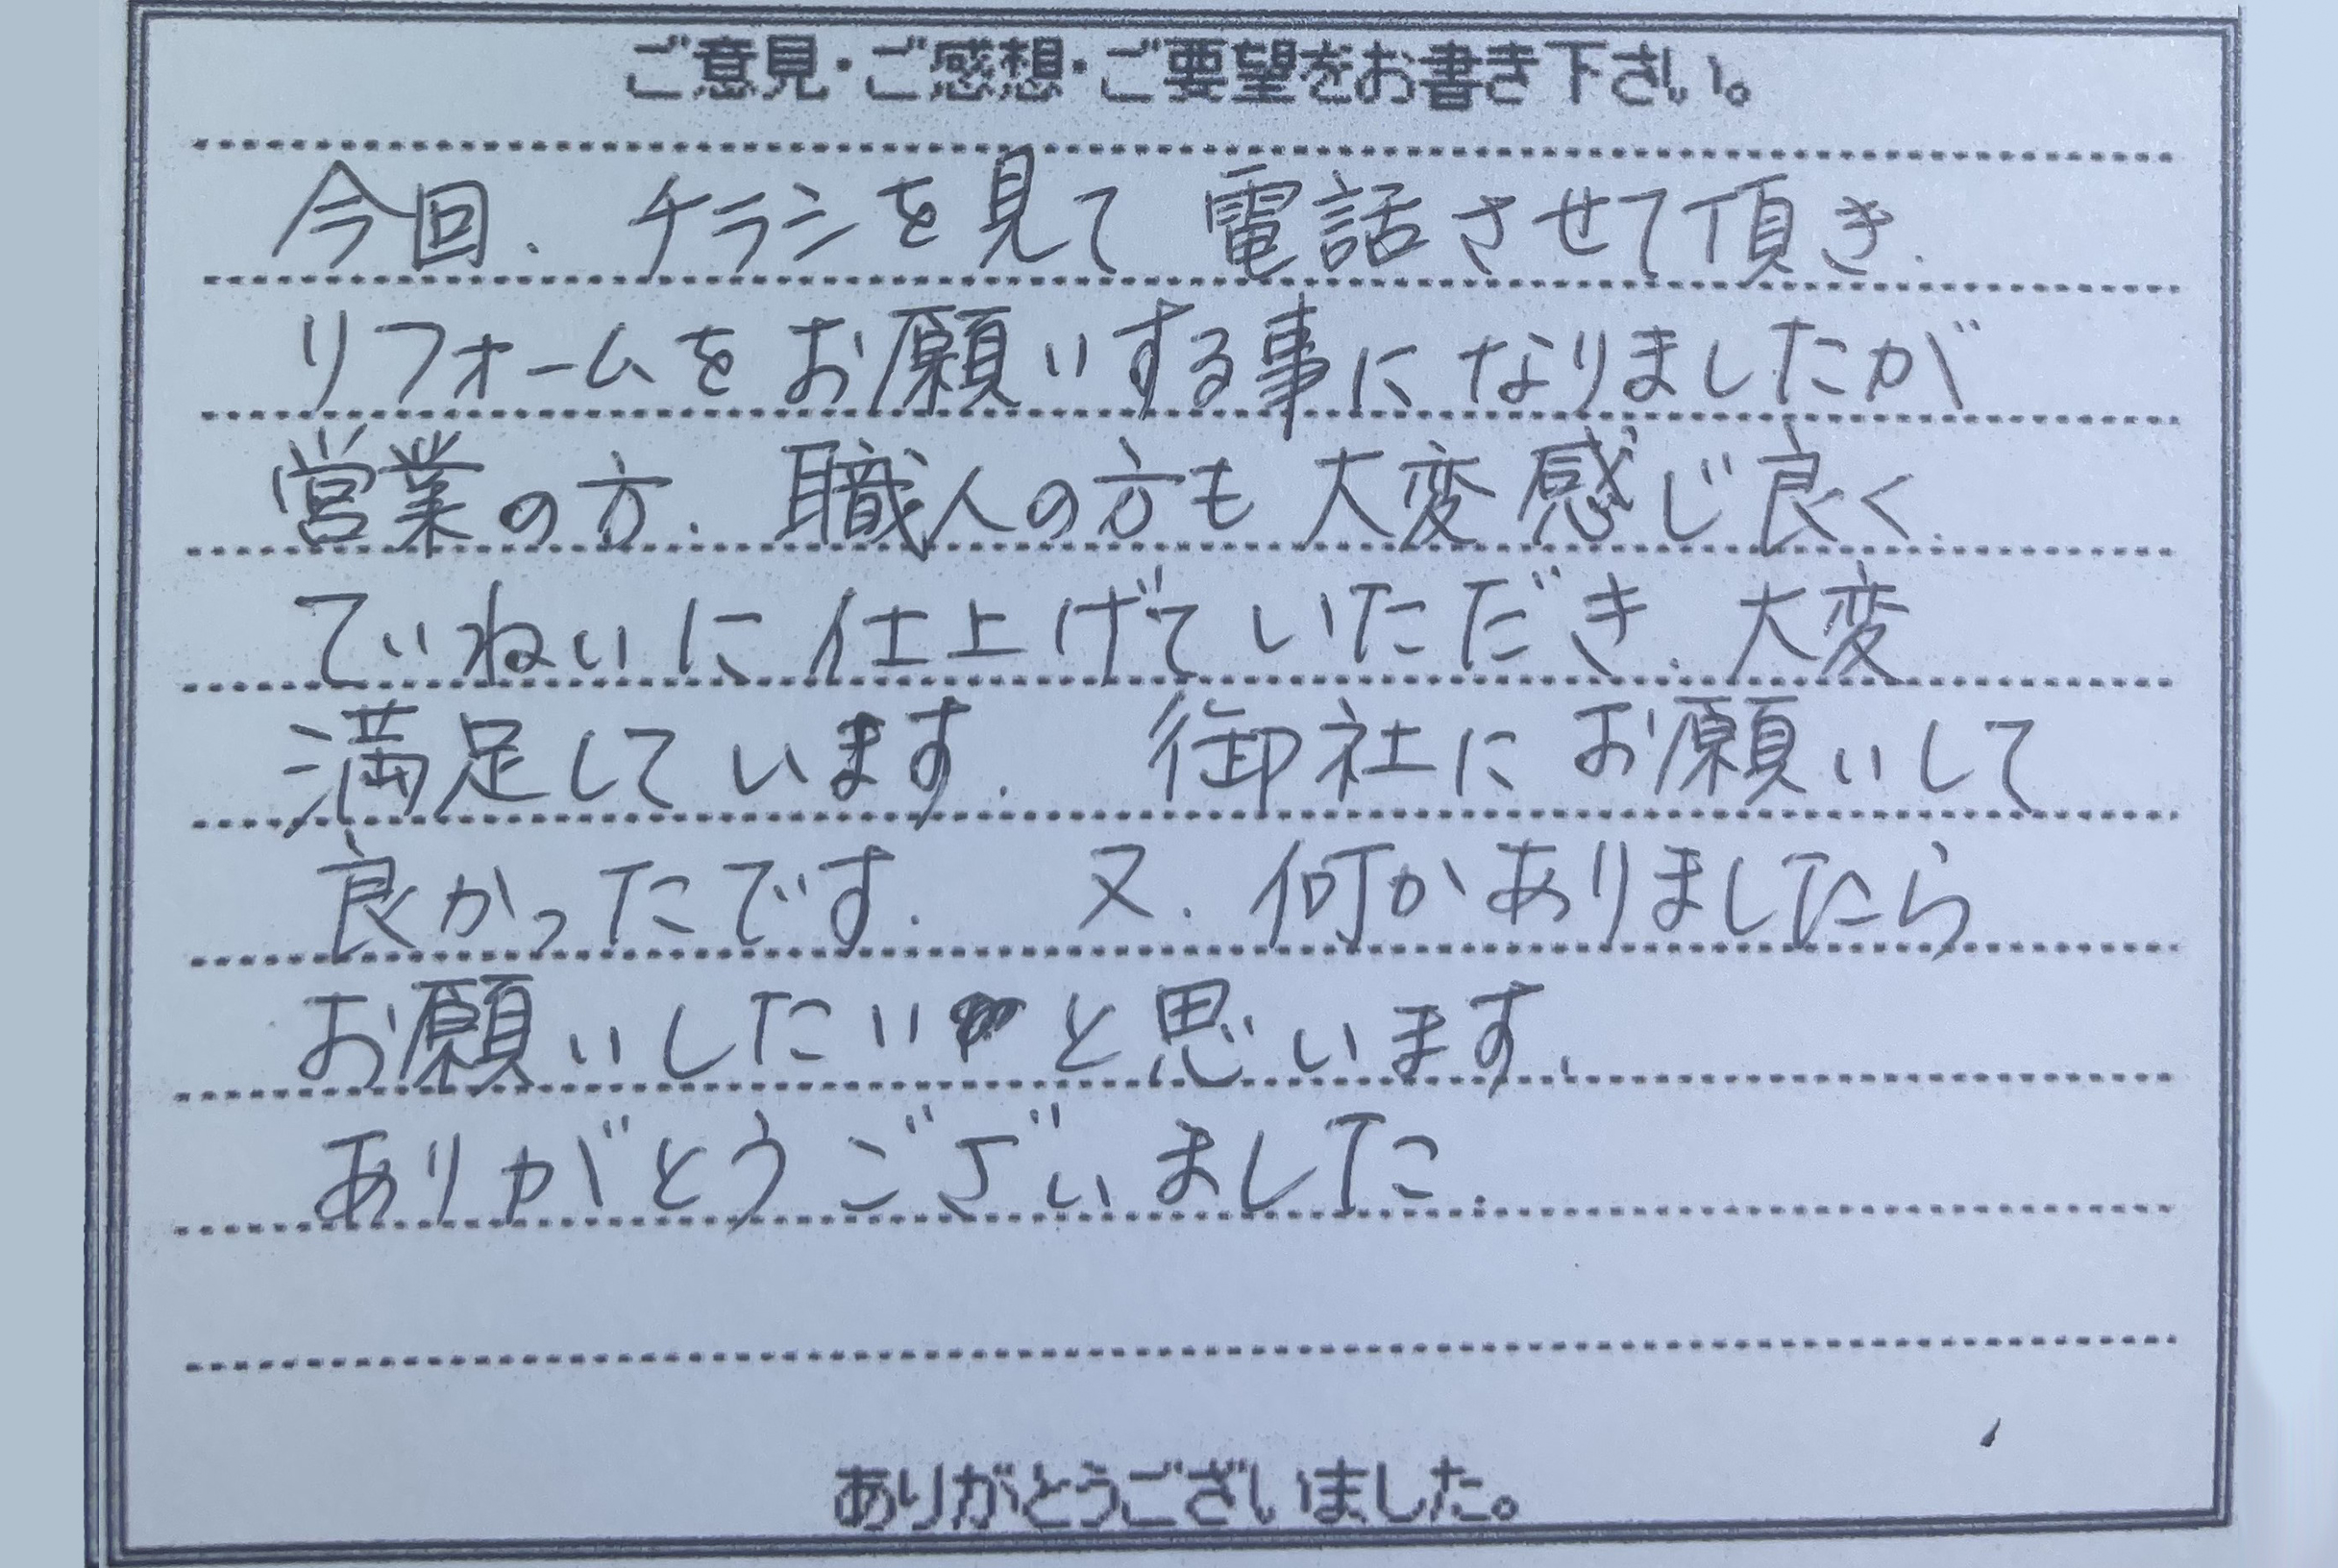 ご意見・ご感想・ご要望をお書き下さい。
今回、チラシを見て 電話させて頂き、
リフォームをお願いする事になりましたが
営業の方、職人の方も大変感じ良く、
ていねいに仕上げていただき、大変
満足しています。 御社にお願いして
良かったです。 又、何かありましたら
お願いしたいと思います。
ありがとうございました。
ありがとうございました。